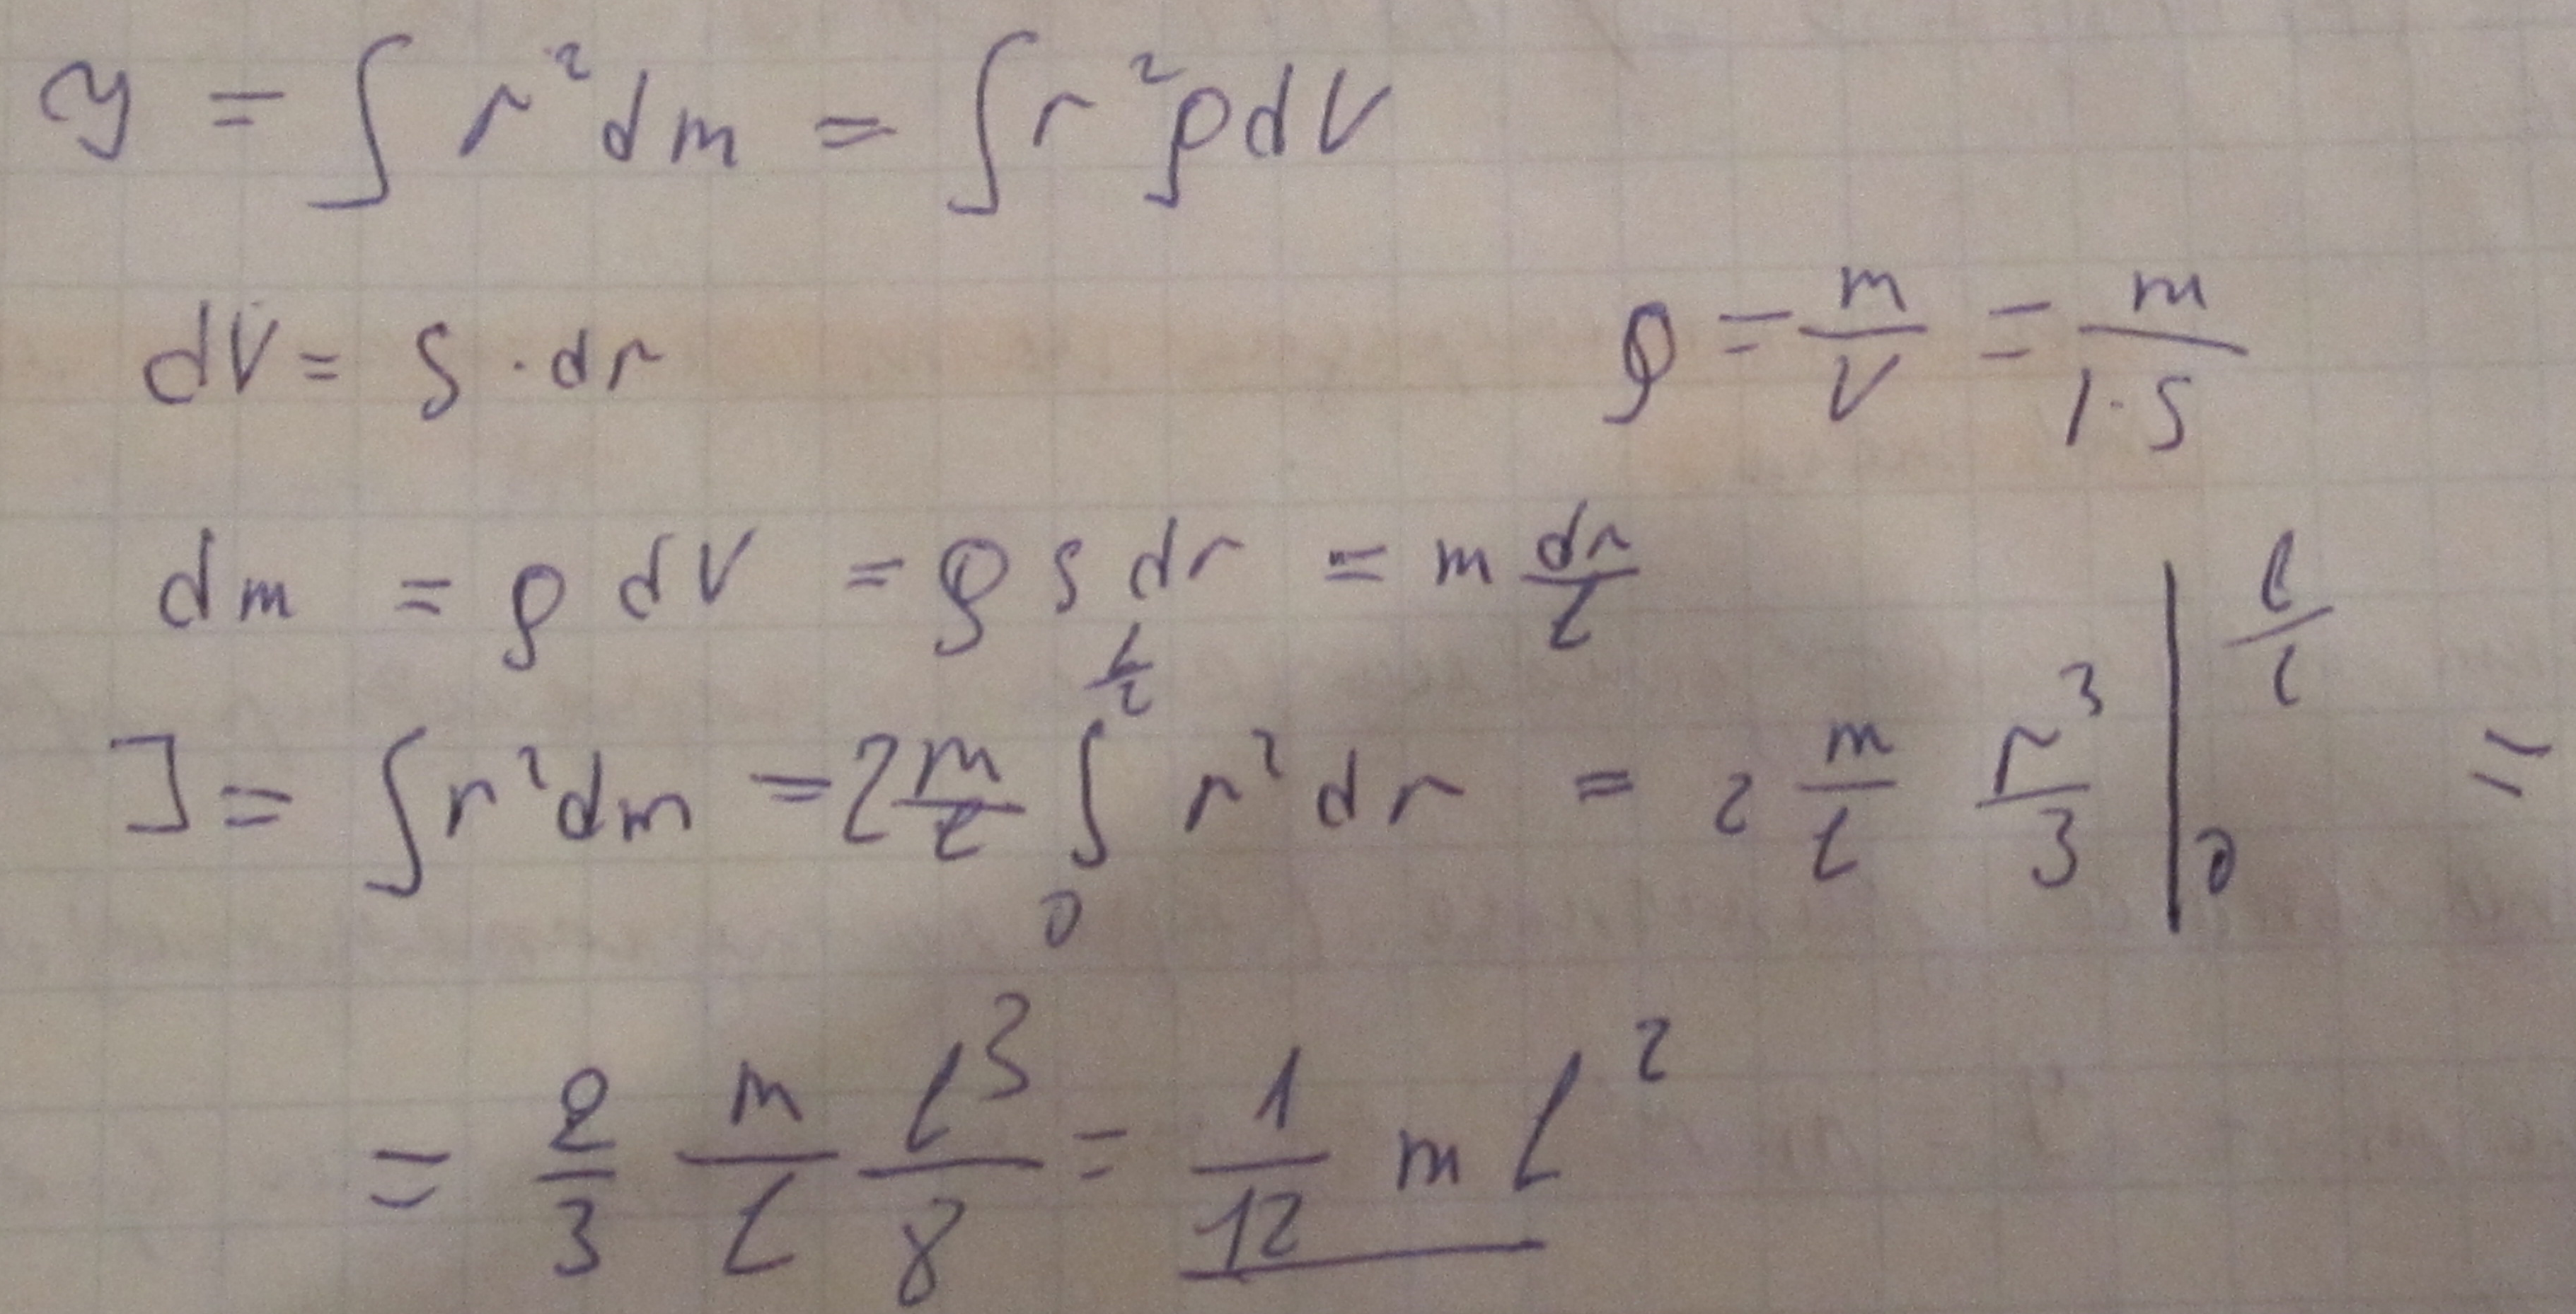 J = ∫ r² dm = ∫ r² ρ dV
dV = S · dr    ρ = m/V = m/(l·S)
dm = ρ dV = ρ S dr = m dr/l
J = ∫ r² dm = 2 m/l ∫₀^(l/2) r² dr = 2 m/l r³/3 |₀^(l/2) =
= 2/3 m/l l³/8 = 1/12 m l²